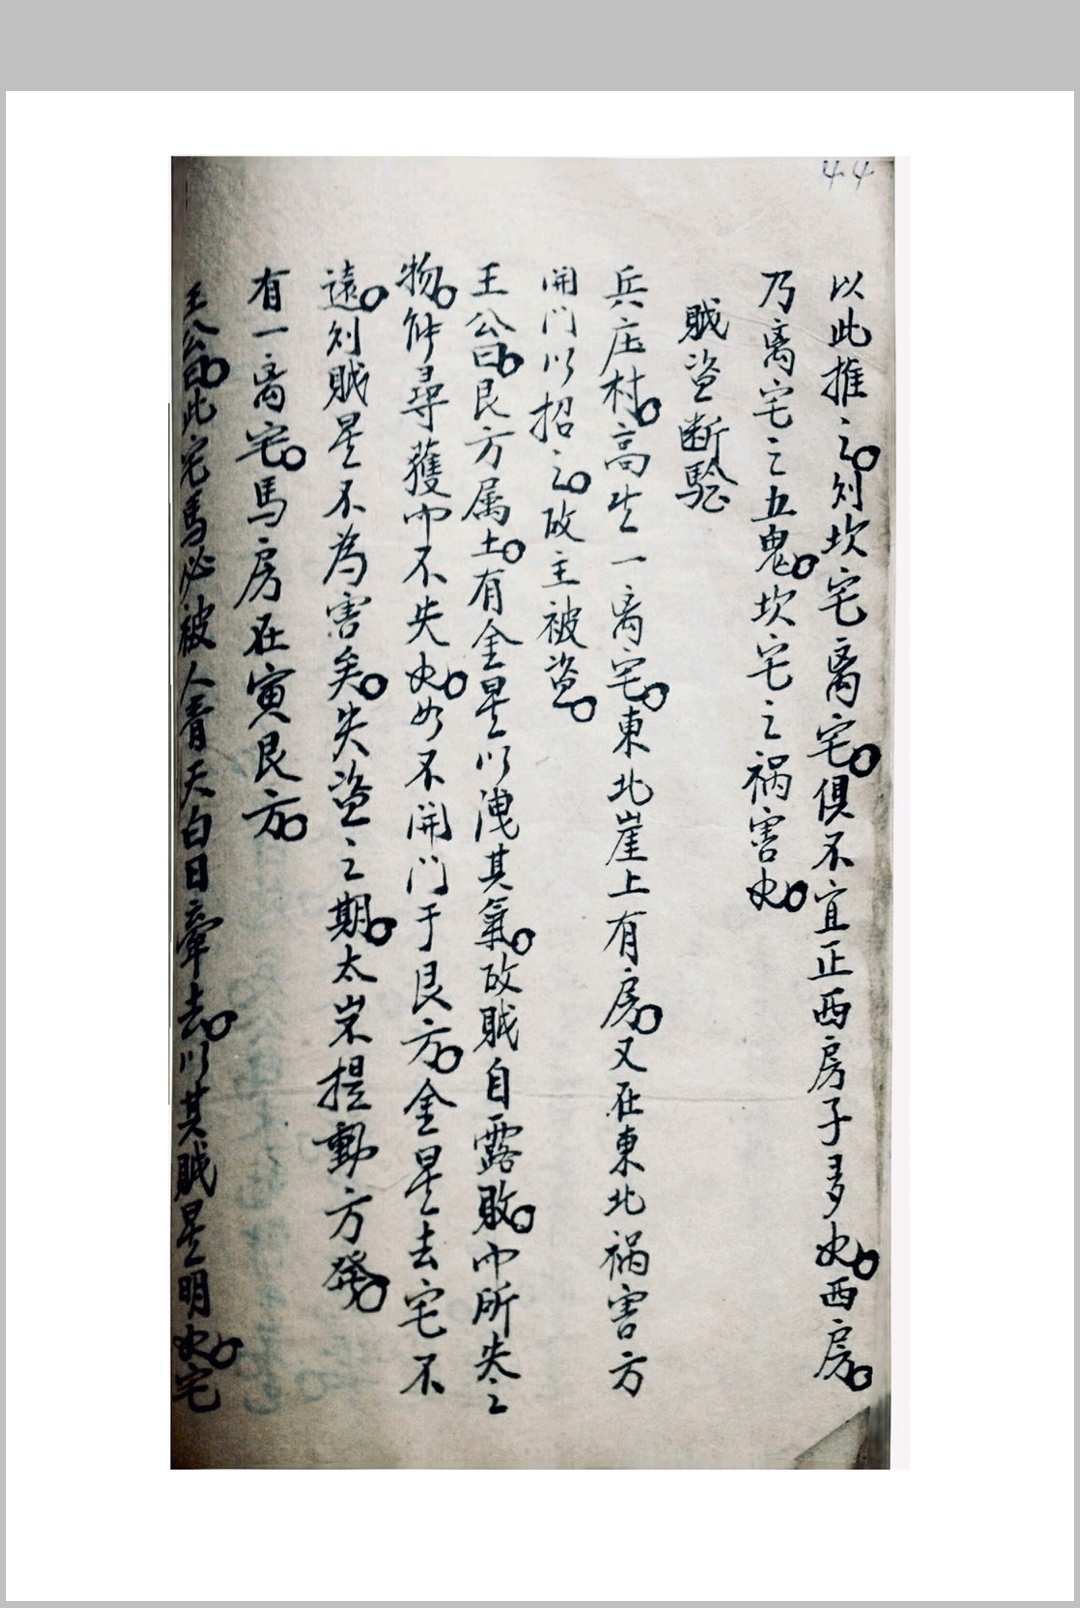 44
以此推之。则坎宅离宅。俱不宜正西房子多也。西房。
乃离宅之五鬼。坎宅之祸害也。
贼盗断驗
兵庄村。高生一离宅。東北崖上有房。又在東北祸害方
開门以招之。故主被盗。
王公曰。艮方属土。有金星以洩其氣。故贼自露敗。而所失之
物。能尋獲而不失也。如不開门于艮方。金星去宅不
遠。则贼星不為害矣。失盗之期。太岁提動方發。
有一离宅。馬房在寅艮方。
王公曰。此宅馬必被人青天白日牵去。以其贼星明也。宅